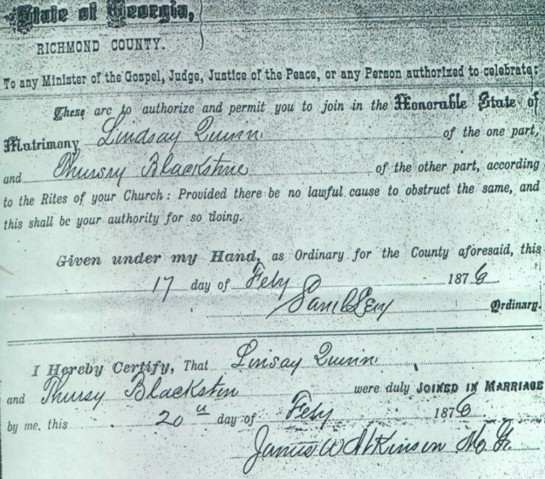 State of Georgia,
RICHMOND COUNTY.
To any Minister of the Gospel, Judge, Justice of the Peace, or any Person authorized to celebrate:
These are to authorize and permit you to join in the Honorable State of
Matrimony Lindsay Quinn of the one part,
and Thursry Blackstine of the other part, according
to the Rites of your Church: Provided there be no lawful cause to obstruct the same, and
this shall be your authority for so doing.
Given under my Hand, as Ordinary for the County aforesaid, this
17 day of Feby 1876
Saml Levy Ordinary.
I Hereby Certify, That Linsay Quinn
and Thursy Blackstin were duly JOINED IN MARRIAGE
by me, this 20th day of Feby 1876
James W Atkinson M. G.